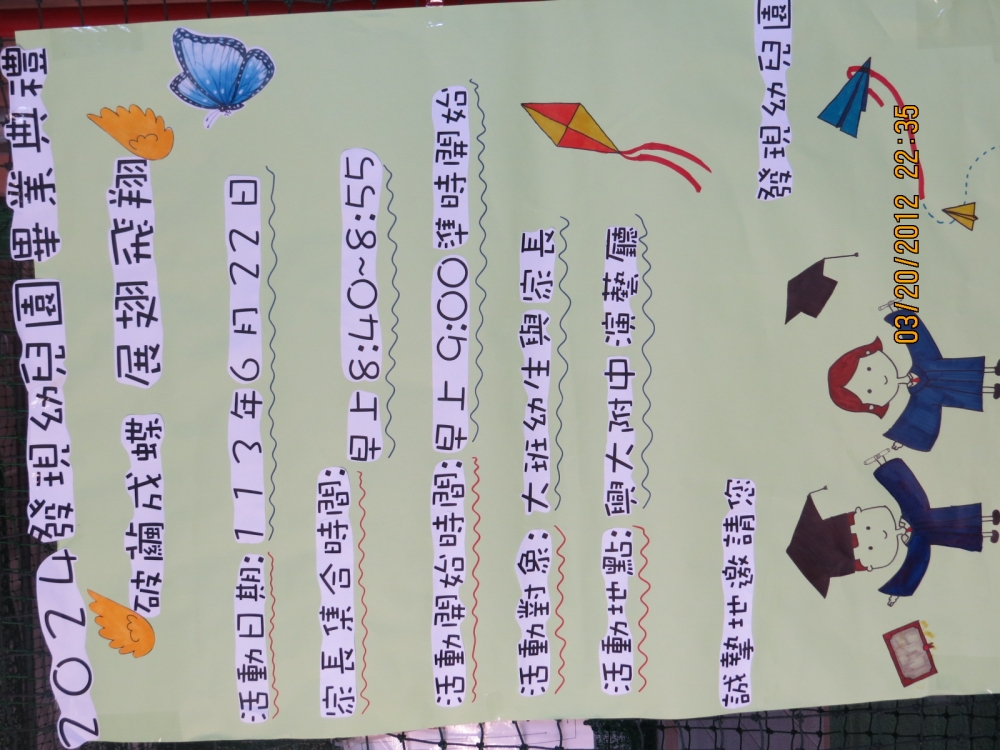 2024發現幼兒園 畢業典禮
破繭成蝶 展翅飛翔
活動日期:113年6月22日
家長集合時間:早上8:40~8:55
活動開始時間:早上9:00準時開始
活動對象:大班幼生與家長
活動地點:興大附中演藝廳
誠摯地邀請您
發現幼兒園
03/20/2012 22:35